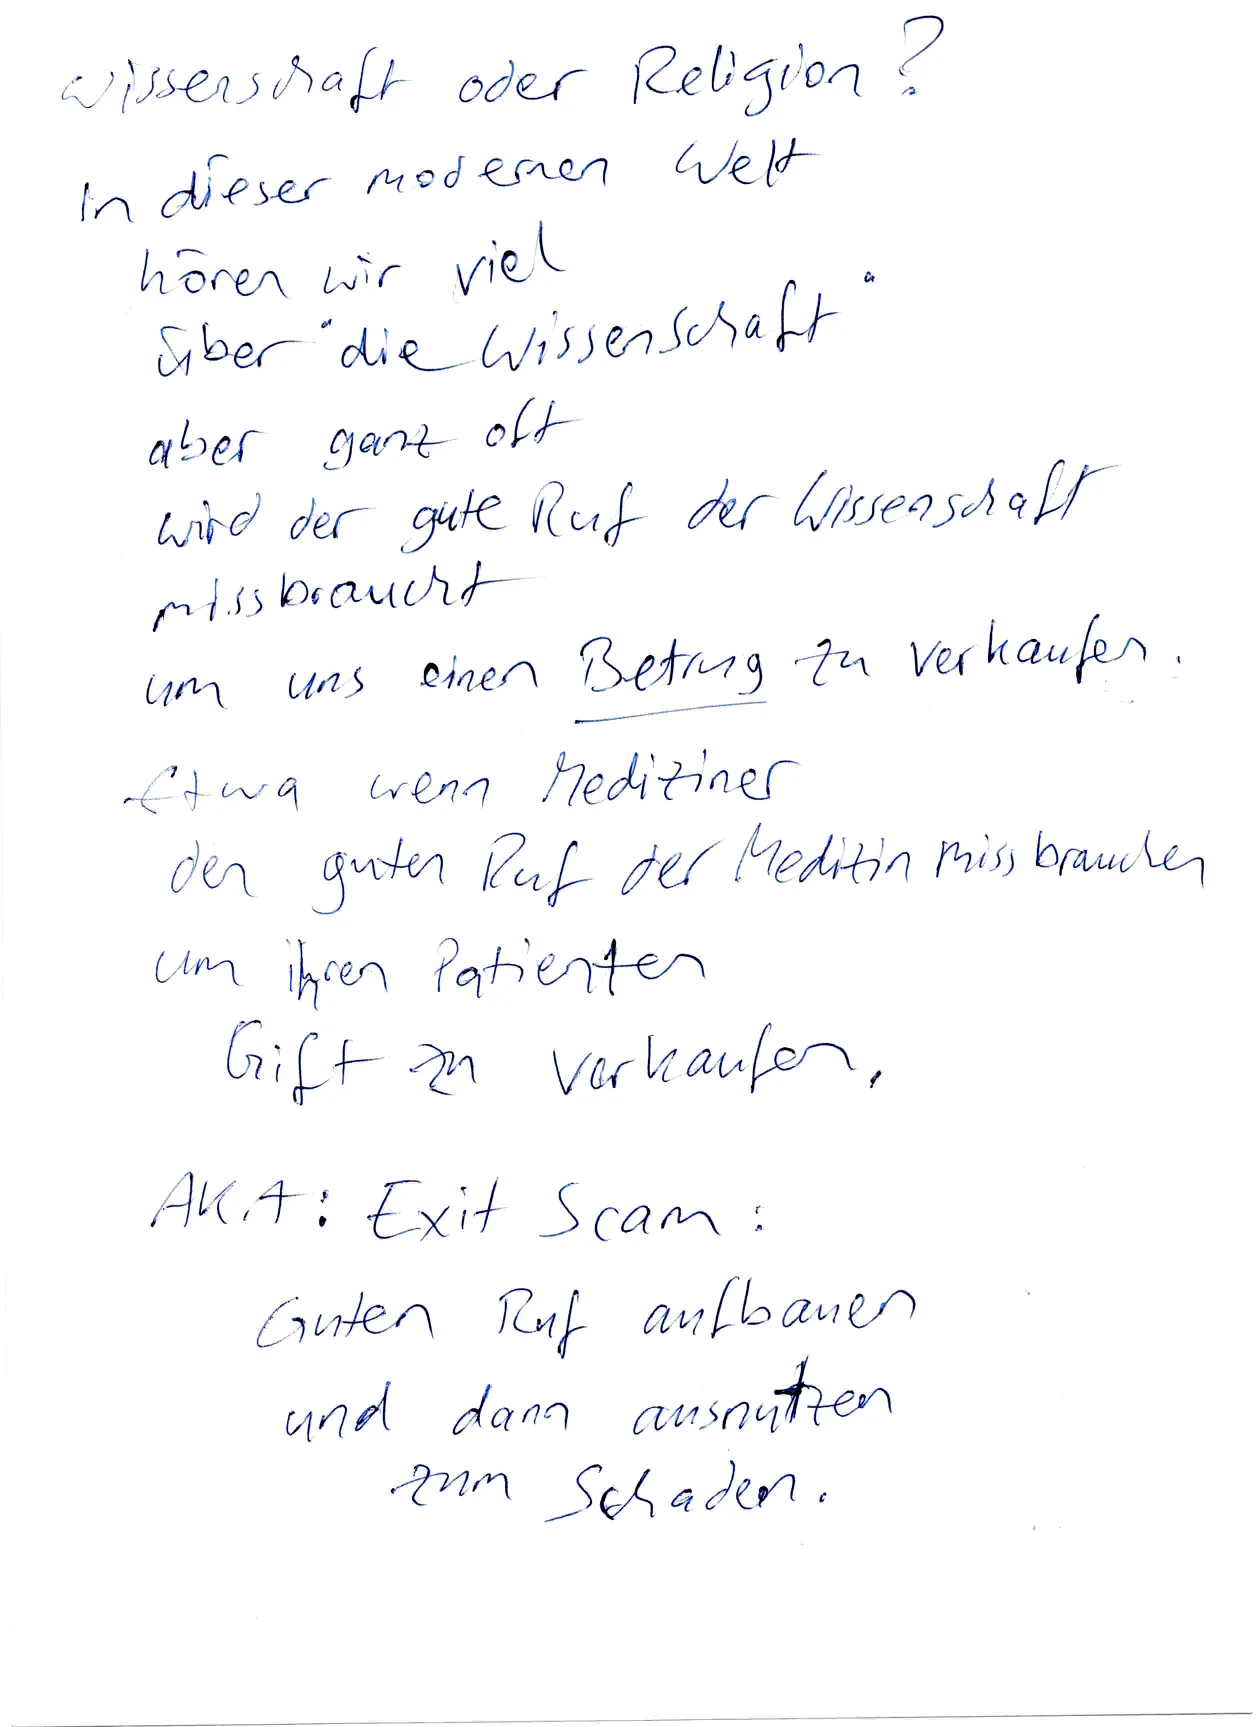 Wissenschaft oder Religion?
In dieser modernen Welt
hören wir viel
über "die Wissenschaft"
aber ganz oft
wird der gute Ruf der Wissenschaft
missbraucht
um uns einen Betrug zu verkaufen.
Etwa wenn Mediziner
den guten Ruf der Medizin missbrauchen
um ihren Patienten
Gift zu verkaufen.
AKA: Exit Scam:
Guten Ruf aufbauen
und dann ausnutzen
zum Schaden.